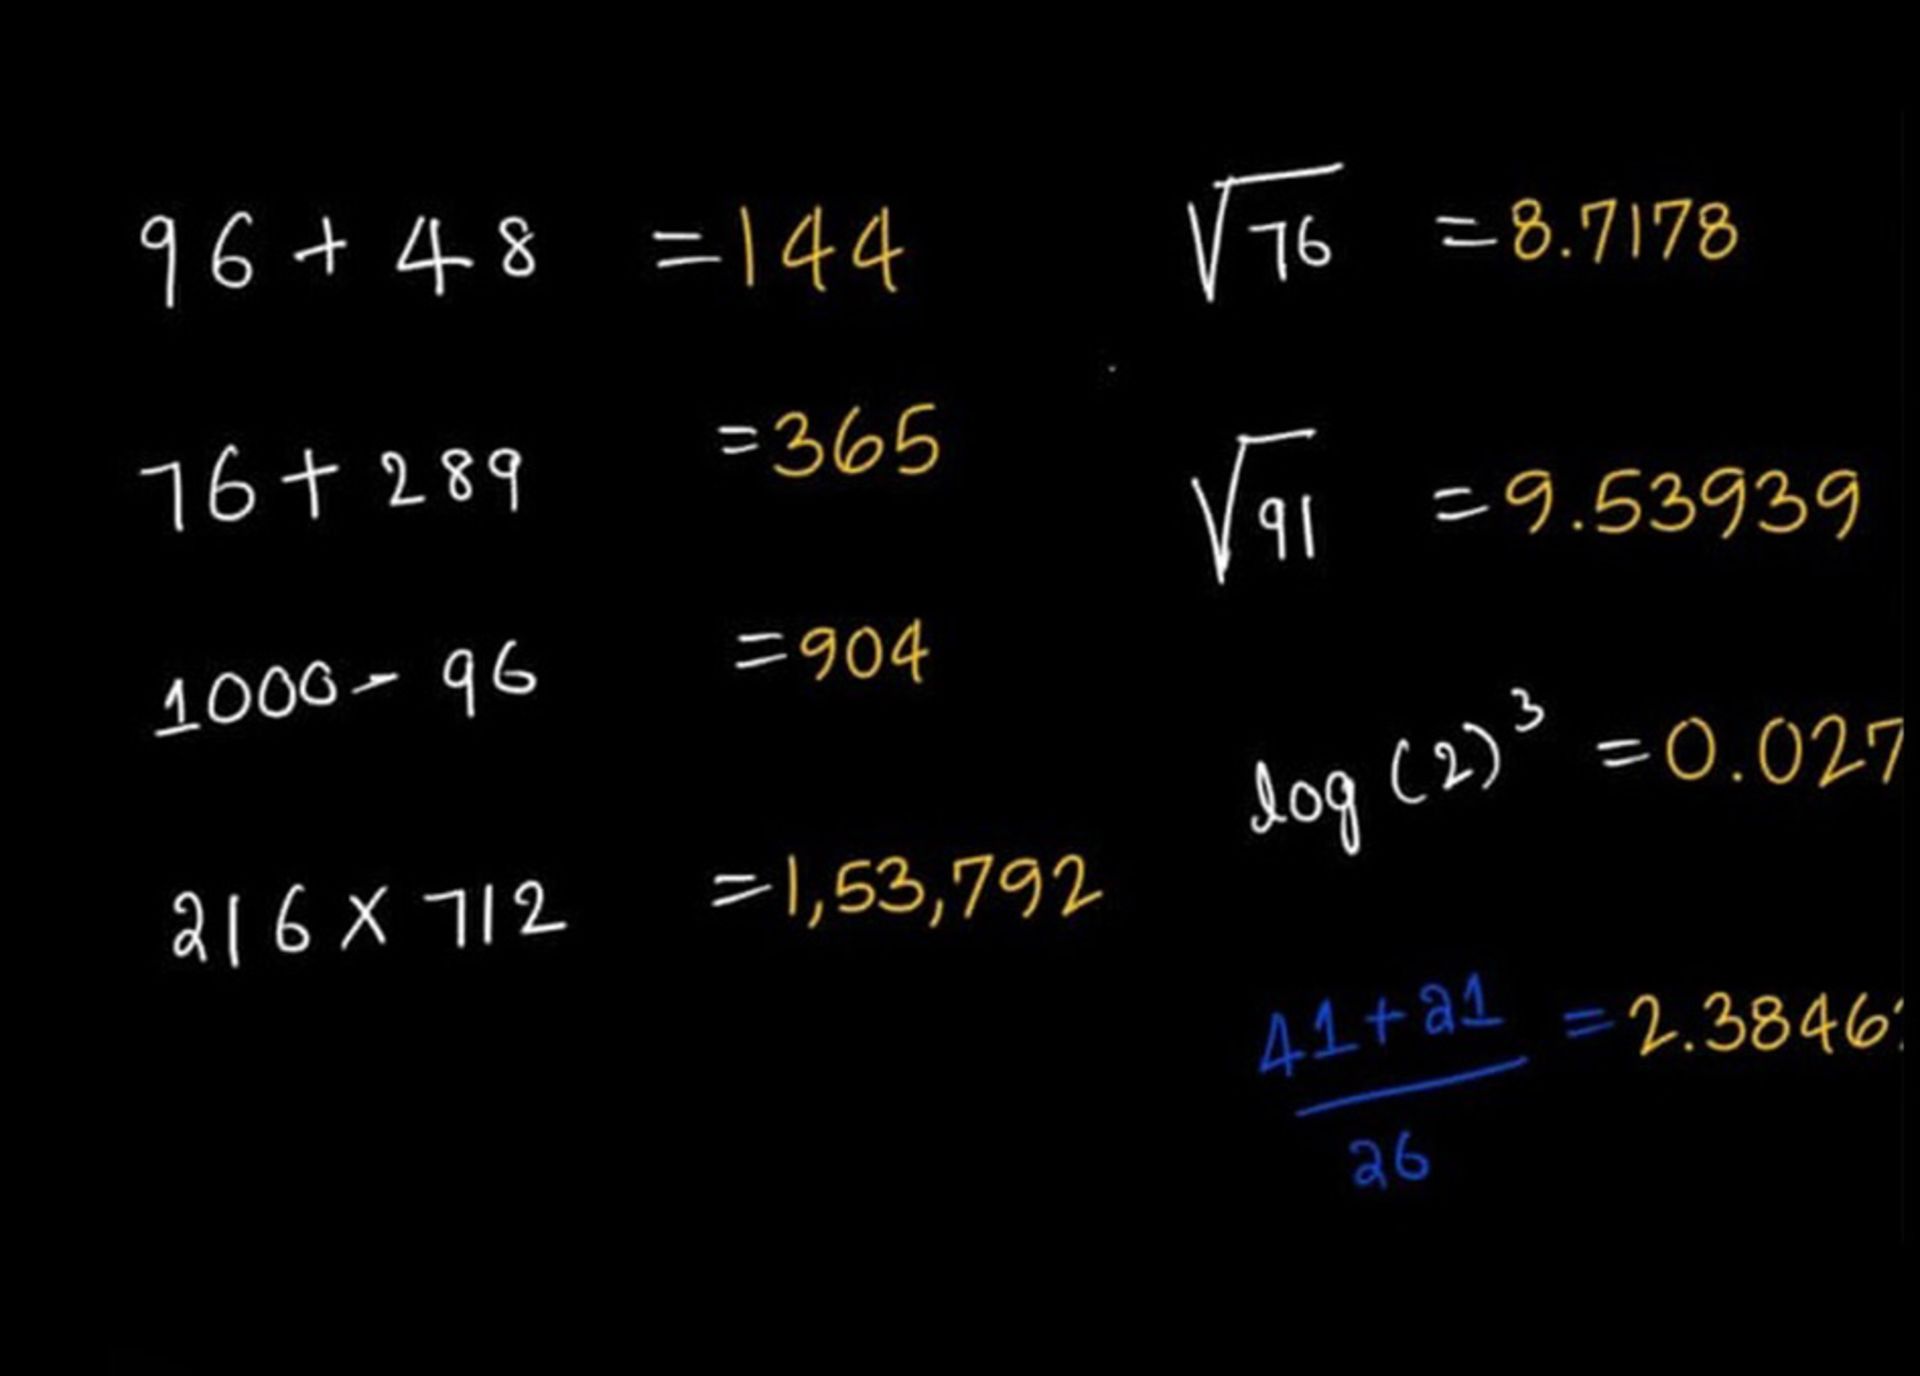 96 + 48 = 144
76 + 289 = 365
1000 - 96 = 904
216 x 712 = 1,53,792
√76 = 8.7178
√91 = 9.53939
log (2)³ = 0.027
41+21 = 2.3846
26